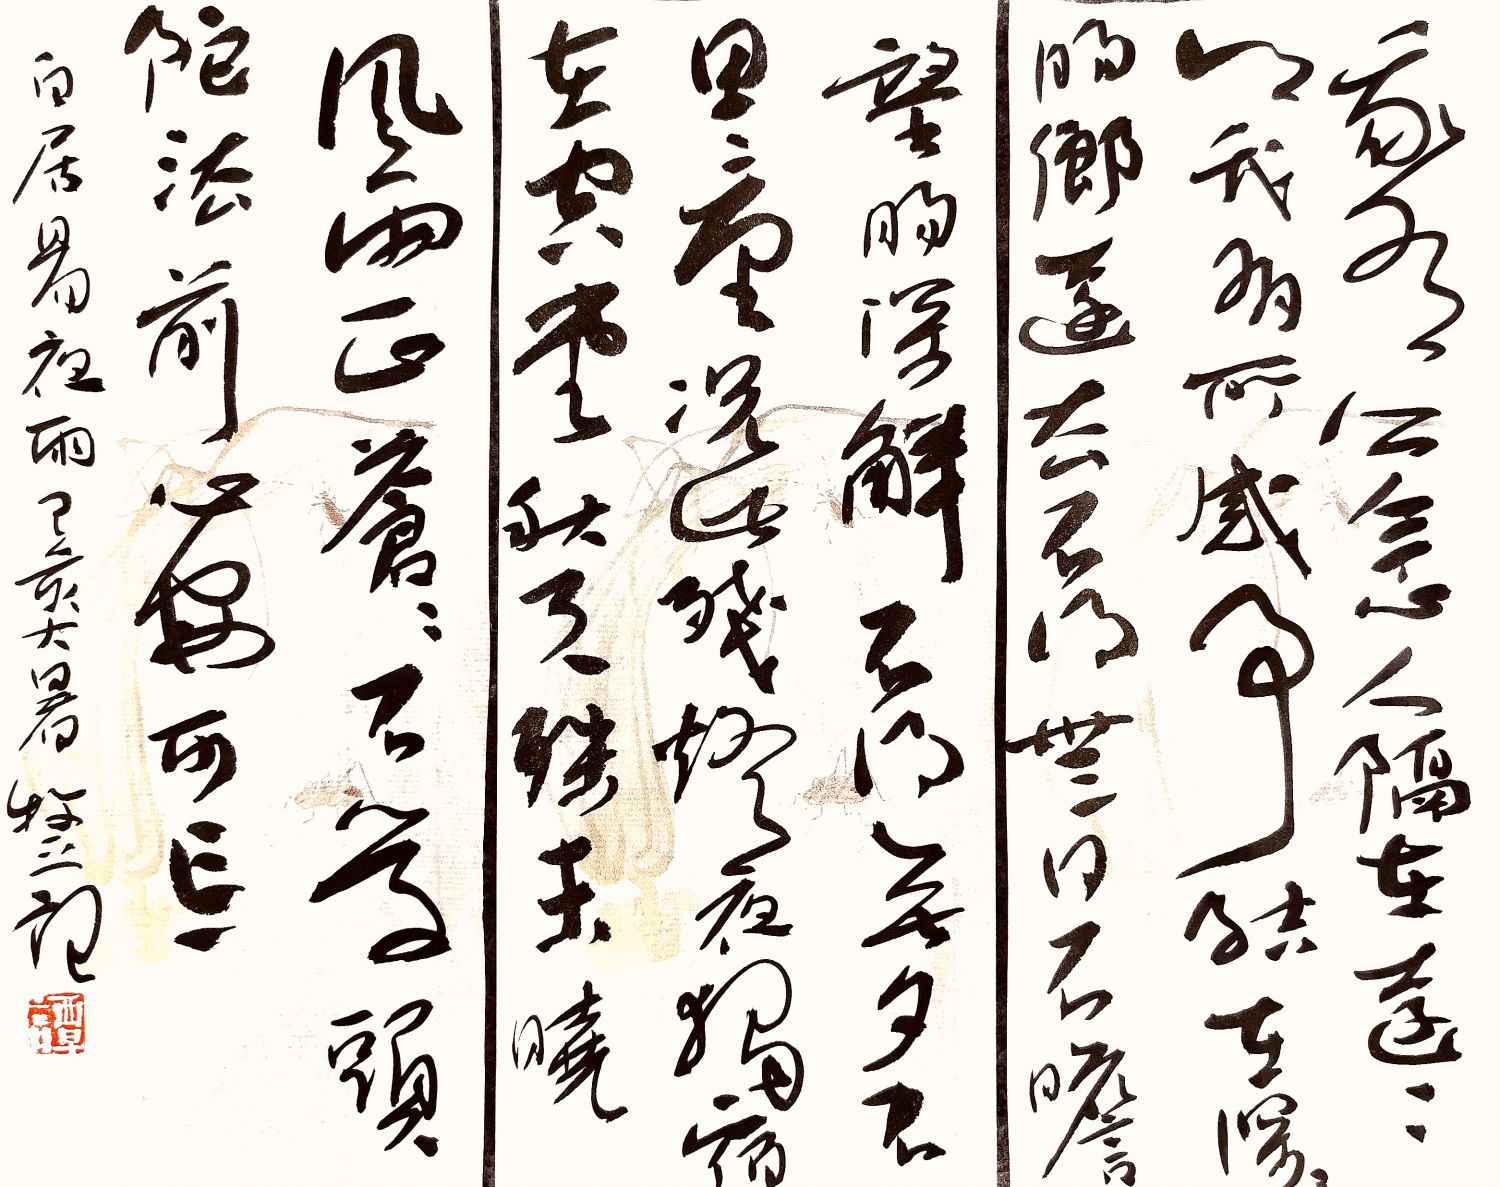 我有所念人隔在遠〻
鄉我有所感事結在深〻
腸鄉遠去不得無日不瞻
望腸深解不得無夕不
思量況此殘燈夜獨宿
在空堂秋天殊未曉
風雨正蒼〻不學頭
陀法前心安可忘
白居易夜雨己亥大暑 記